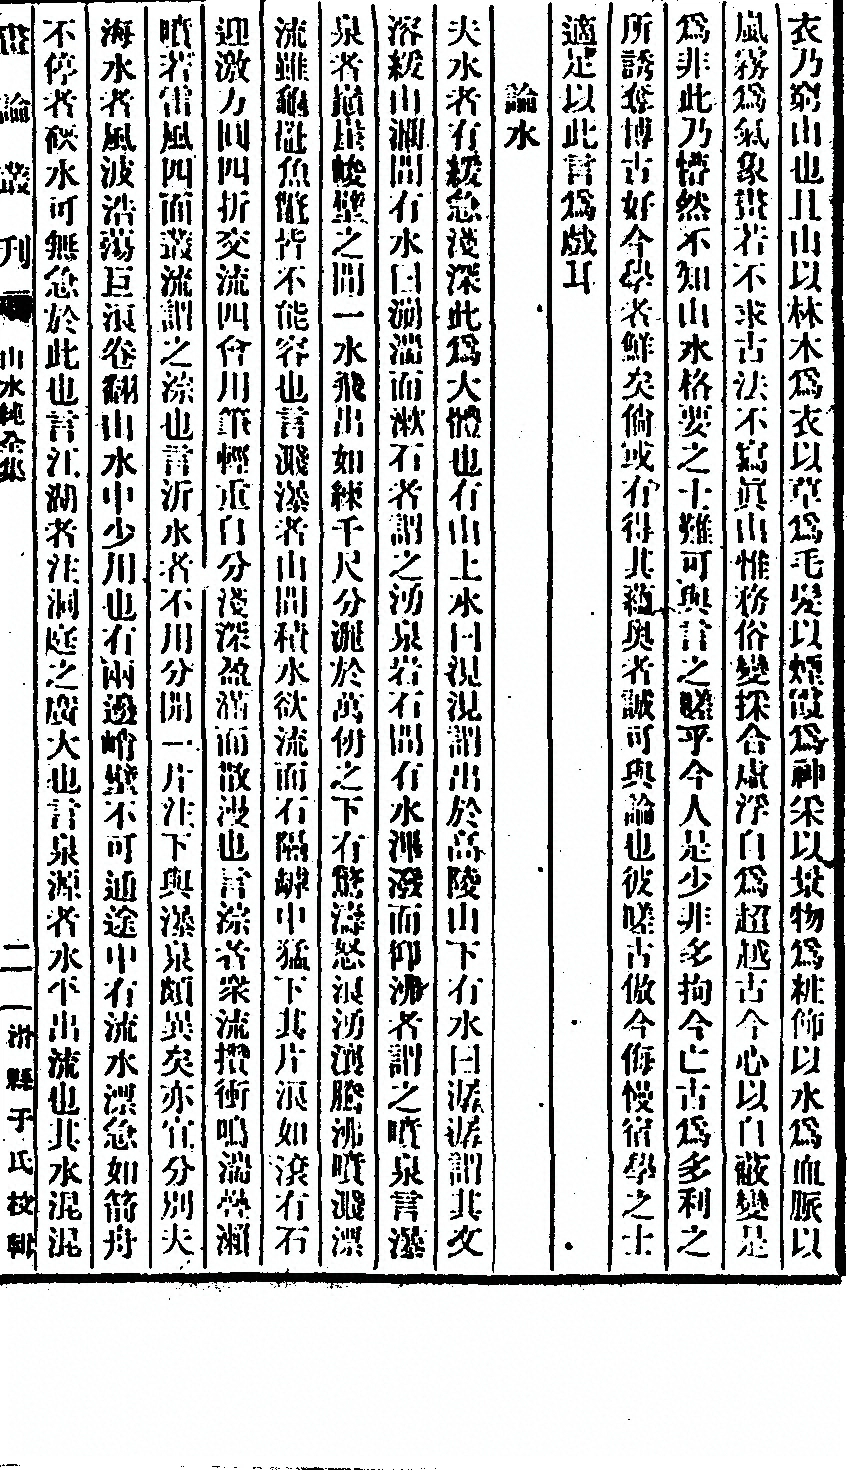 衣乃窮山也且山以林木爲衣以草爲毛髮以煙霞爲神采以景物爲粧飾以水爲血脈以
嵐霧爲氣象畫若不求古法不寫眞山惟務俗變採合虛浮自爲超越古今心以自蔽變是
爲非此乃懵然不知山水格要之士難可與言之嗟乎今人是少非多拘今亡古爲多利之
所誘奪博古好今學者鮮矣倘或有得其蘊奧者誠可與論也彼嗟古傲今侮慢宿學之士
適足以此言爲戲耳
論水
夫水者有緩急淺深此爲大體也有山上水曰涀涀謂出於高陵山下有水曰潺潺謂其文
溶緩山澗間有水曰湍湍而漱石者謂之湧泉岩石間有水渾潑而仰沸者謂之噴泉言瀑
泉者巔崖峻壁之間一水飛出如練千尺分灑於萬仞之下有驚濤怒浪湧瀼騰沸噴濺漂
流雖龜鼉魚龍皆不能容也言濺瀑者山間積水欲流而石隔罅中猛下其片浪如滾有石
迎激方圓四折交流四會用筆輕重自分淺深盈滿而散漫也言淙者衆流攢衝鳴湍疊瀨
噴若雷風四面叢流謂之淙也言沂水者不用分開一片注下與瀑泉頗異矣亦宜分別夫
海水者風波浩蕩巨浪卷翻山水中少用也有兩邊峭壁不可通途中有流水漂急如箭舟
不停者硤水可無急於此也言江湖者注洞庭之廣大也言泉源者水平出流也其水混混
畫論叢刊 山水純全集 二一 滑縣于氏校輯